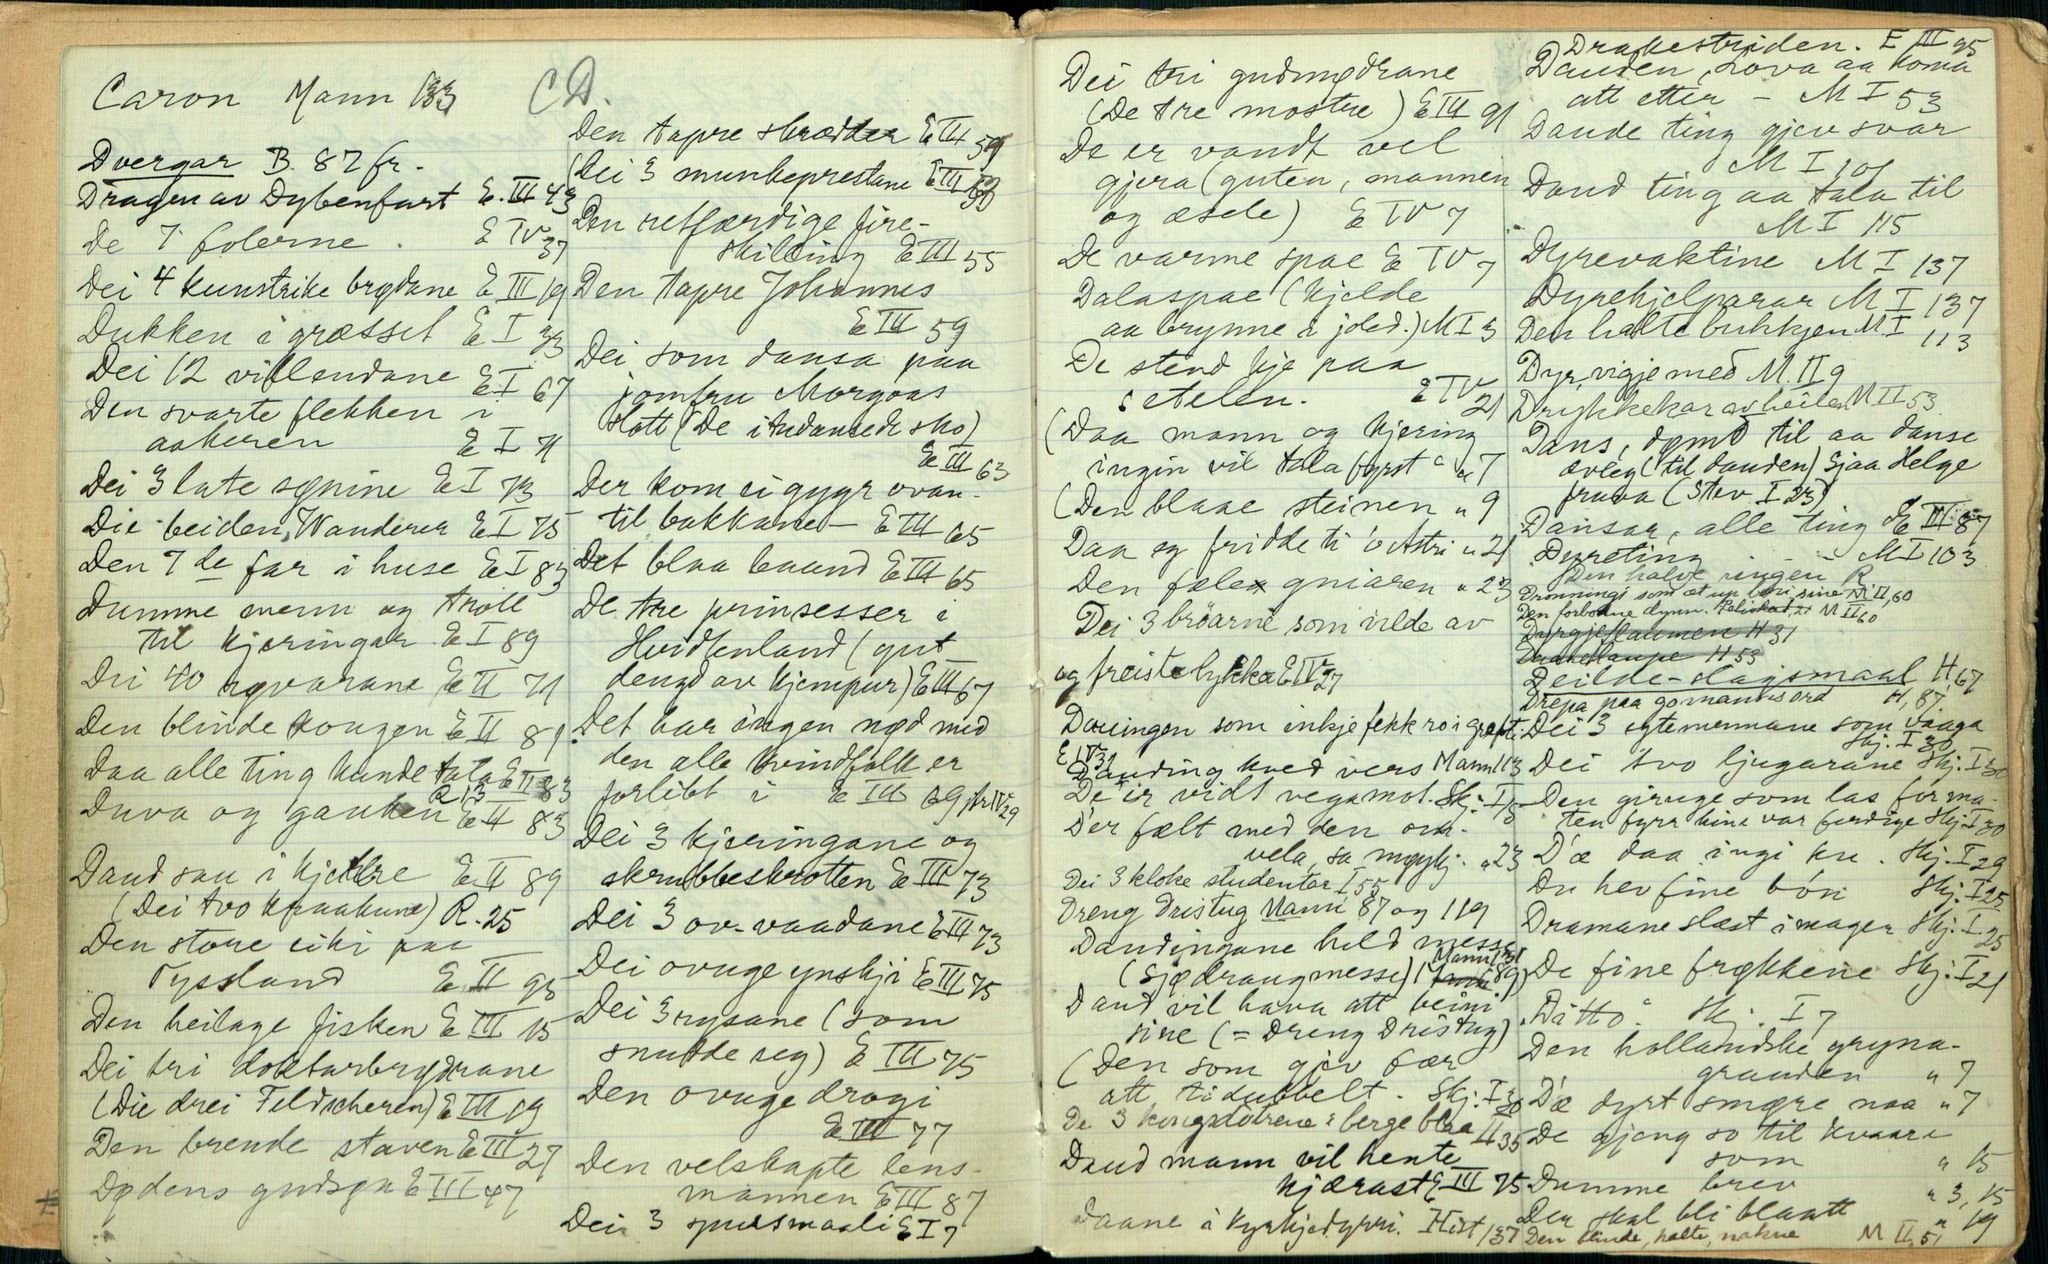 Caron Mann 133
C D.
Dvergar B. 87 fr.
Dragen av Dybenfart E. III 43
De 7 folerne. E IV 37
Dei 4 kunstrike brydane E III 19
Dukken i græsset E I 33
Dei 12 villendane E I 67
Den svarte flekken i
aakeren E I 71
Dei 3 late sønine E I 73
Die beiden Wanderer E I 75
Den 7de far i huse E I 83
Dumme menn og troll
til kjeringar E I 89
Dei 40 røvarane E II 71
Den blinde kongen E II 81
Daa alle ting kunde tala E II 83
R 13
Duva og gauken E II 83
Daud sau i kjellre E II 89
(Dei tvo kraakune) R. 25
Den store eiki paa
Tyssland E II 93
Den heilage fisken E III 15
Dei tri doktarbrydrane
(Die drei Feldscheren) E III 19
Den brende staven E III 27
Dødens gudsøn E III 47
Den tapre skrædder E III 59
(Dei 3 munkeprestane E III 53
Den retfærdige fire-
skilling E III 55
Den tapre Johannes
E III 59
Dei som dansa paa
jomfru Morgoas
slott (De itudansede sko)
E III 63
Der kom ei gygr ovan-
til bakkane - E III 65
Det blaa baand E III 65
De tre prinsesser i
Hvidtenland (gut
dengd av kjempur) E III 67
Det har ingen nød med
den alle kvindfolk er
forlibt i E III 69 jfr IV 29
Dei 3 kjeringane og
skrubbeskrotten E III 73
Dei 3 ov-vaadane E III 73
Dei ovuge ynskji E III 75
Dei 3 rysane (som
snudde seg) E III 75
Den ovuge drogi
E III 77
Den velskapte lens-
mannen E III 87
Dei 3 spursmaali E I 7
Dei tri gudmødrane
(De tre mostre) E III 91
De er vandt vel
gjera (guten, mannen
og æsele) E IV 7
De varme spae E IV 7
Dalaspae (kjelde
aa brynne i joled.) M I 3
De stend kje paa
setelen. E IV 21
(Daa mann og kjering
ingin vil tala fyrst " " 7
(Den blaae steinen " 9
Daa eg fridde ti 'o Astri " 21
Den fæle gniaren " 23
Dei 3 brøarne som vilde av
og freiste lykka E IV 27
Dauingen som inkje fekk ro i grøfti
E IV 31
Dauding kved vers Mann 113
De er vidt vegamot. Skj. I 15
D'er fælt med den om-
vela, sa møykj. " 23
Dei 3 kloke studentar I 55
Dreng Dristug Mann 87 og 119
Daudingane held messe
(Sjødraugmesse) Mann 131
Daud vil hava att beini
sine (= Dreng Dristug)
(Den som gjev fær
att tidubbelt. Skj. I 30
De 3 kongsdøtrene i berge blaa II 35
Daud mann vil hente
kjærast E III 75
Daane i kyrkjedyri. Hist 137
Drakestriden. E III 95
Dauden, lova aa koma
att etter - M I 53
Daude ting gjev svar
M I 101
Daud ting aa tala til
M I 115
Dyrevaktine M I 137
Dyrehjelparar M I 137
Den halte bukkjen M I 113
Dyr, vigje med M. II 9
Drykkekar av heilen M II 53
Dans, dømd til aa danse
ævleg (til dauden) Sjaa Helge
fruva (Stev I 23)
Dansar, alle ting E III 87
Dyreting - - M I 103
Den halve ringen R
Dronningi som æt up bon sine M II, 60
Den forbodne dynn. M II 60
Dyrgjeslaumen H 31
H 53
Deilde-slagsmaal H 67
Drepa paa gomannsord H, 87.
Dei 3 egtemennane som vaaga
Skj. I 30
Dei tvo ljugarane Skj. I 30
Den giruge som las for ma-
ten fyrr hine var ferdige Skj. I 30
D'æ daa ingi ku. Skj. I 29
Du hev fine bón Skj. I 25
Dramane slæst i magen Skj. I 25
De fine frøkkene Skj. I 21
"Ditto" Skj. I 7
Den hollandske gryna-
grauden " 7
D'æ dyrt smøre naa " 7
De gjeng so til kvaare
som " 15
Dumme brev " 3, 15
Der skal bli blautt " 19
Den blinde, halte, nakne M II, 51